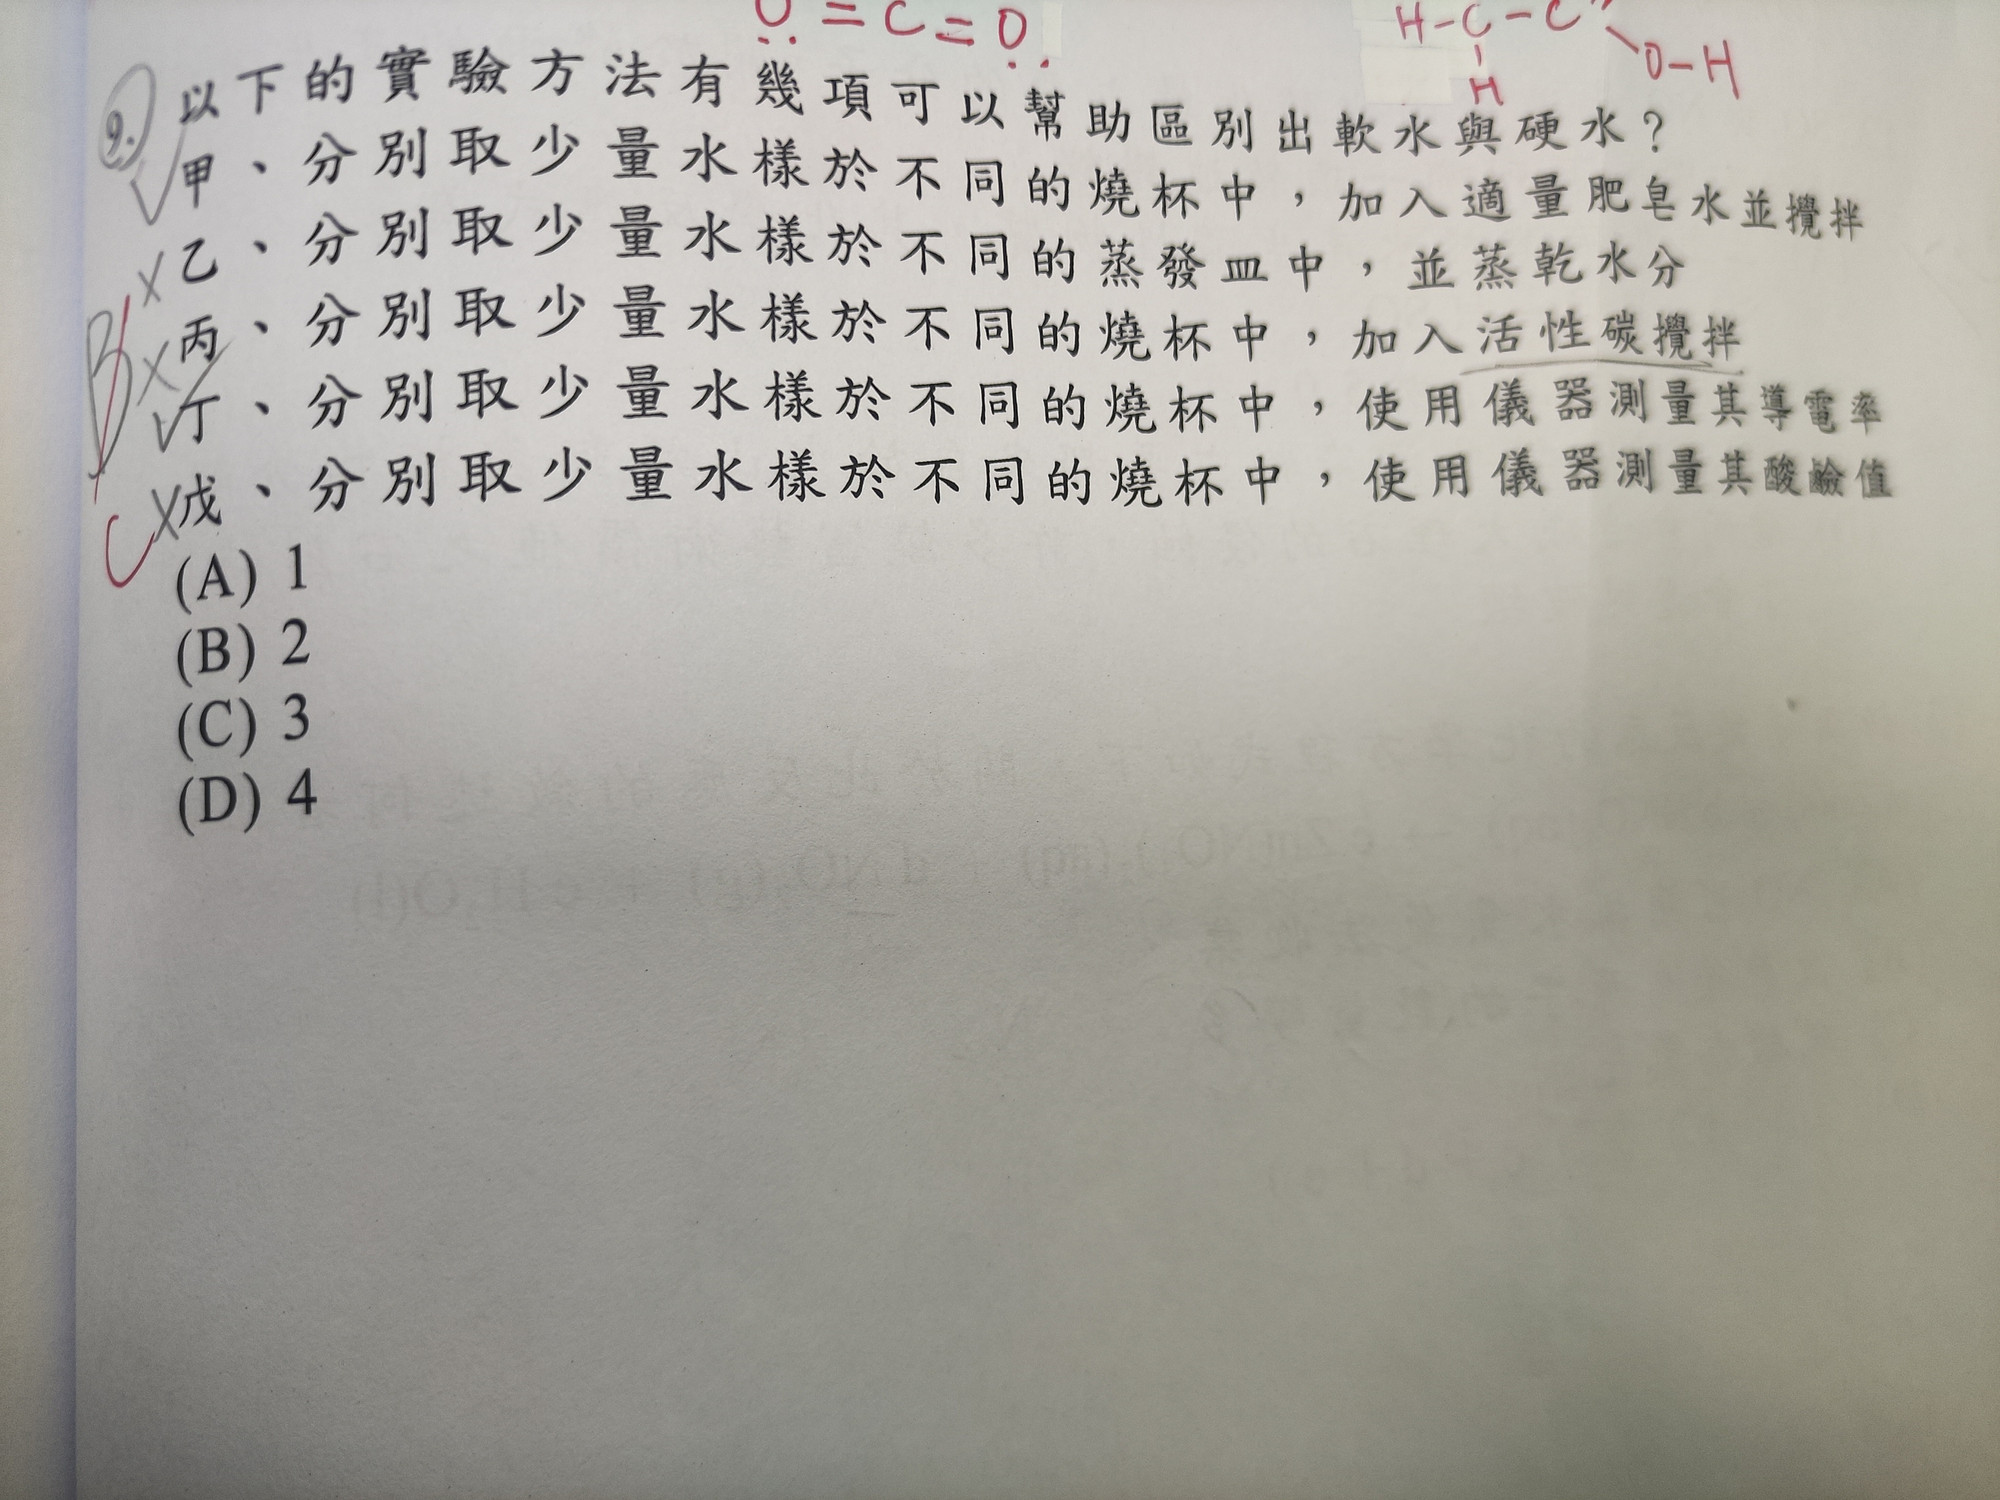 O = C = O
H-C-C
O-H
H
9. 以下的實驗方法有幾項可以幫助區別出軟水與硬水？
✓甲、分別取少量水樣於不同的燒杯中，加入適量肥皂水並攪拌
X乙、分別取少量水樣於不同的蒸發皿中，並蒸乾水分
X丙、分別取少量水樣於不同的燒杯中，加入活性碳攪拌
B
✓丁、分別取少量水樣於不同的燒杯中，使用儀器測量其導電率
X戊、分別取少量水樣於不同的燒杯中，使用儀器測量其酸鹼值
C
(A) 1
(B) 2
(C) 3
(D) 4